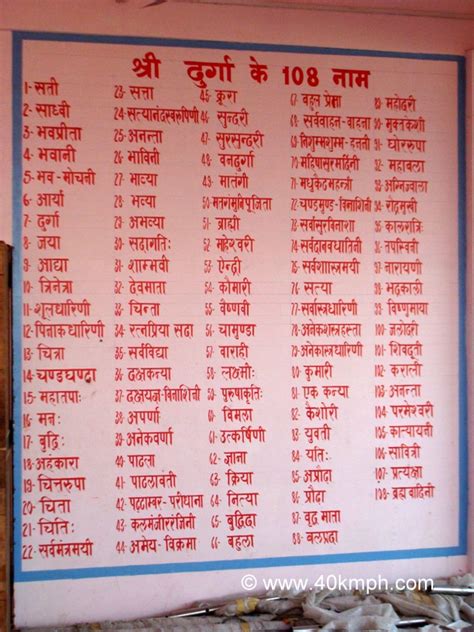 श्री दुर्गा के 108 नाम
1- सती
2- साध्वी
3- भवप्रीता
4- भवानी
5- भव-मोचनी
6- आर्या
7- दुर्गा
8- जया
9- आद्या
10- त्रिनेत्रा
11- शूलधारिणी
12 पिनाकधारिणी
13- चित्रा
14- चण्डघण्टा
15- महातपाः
16- मनः
17- बुद्धिः
18- अहंकारा
19- चित्तरुपा
20- चिता
21- चितिः
22- सर्वमंत्रमयी
23- सत्ता
24- सत्यानंदस्वरुपिणी
25- अनन्ता
26- भाविनी
27- भाव्या
28- भव्या
29- अभव्या
30- सदागतिः
31- शाम्भवी
32- देवमाता
33- चिन्ता
34- रत्नप्रिया सदा
35- सर्वविद्या
36- दक्षकन्या
37- दक्षयज्ञ-विनाशिनी
38- अपर्णा
39- अनेकवर्णा
40- पाटला
41- पाटलावती
42- पट्टाम्बर-परीधाना
43- कलमंजीररंजिनी
44- अमेय-विक्रमा
45- क्रूरा
46- सुन्दरी
47- सुरसुन्दरी
48- वनदुर्गा
49- मातंगी
50- मतंगमुनिपूजिता
51- ब्राह्मी
52- माहेश्वरी
53- ऐन्द्री
54- कौमारी
55- वैष्णवी
56- चामुण्डा
57- वाराही
58- लक्ष्मीः
59- पुरुषाकृतिः
60- विमला
61- उत्कर्षिणी
62- ज्ञाना
63- क्रिया
64- नित्या
65- बुद्धिदा
66- बहुला
67- बहुल प्रेमा
68- सर्ववाहन-वाहना
69- निशुम्भशुम्भ-हननी
70- महिषासुरमर्दिनी
71- मधुकैटभहन्त्री
72- चण्डमुण्ड-विनाशिनी
73- सर्वासुरविनाशा
74- सर्वदानवघातिनी
75- सर्वशास्त्रमयी
76- सत्या
77- सर्वास्त्रधारिणी
78- अनेकशस्त्रहस्ता
79- अनेकास्त्रधारिणी
80- कुमारी
81- एक कन्या
82- कैशोरी
83- युवती
84- यतिः
85- अप्रौढा
86- प्रौढा
87- वृद्ध माता
88- बलप्रदा
89- महोदरी
90- मुक्तकेशी
91- घोररुपा
92- महाबला
93- अग्निज्वाला
94- रौद्रमुखी
95- कालरात्रिः
96- तपस्विनी
97- नारायणी
98- भद्रकाली
99- विष्णुमाया
100- जलोदरी
101- शिवदूती
102- कराली
103- अनन्ता
104- परमेश्वरी
105- कात्यायनी
106- सावित्री
107- प्रत्यक्षा
108- ब्रह्मवादिनी
© www.40kmph.com